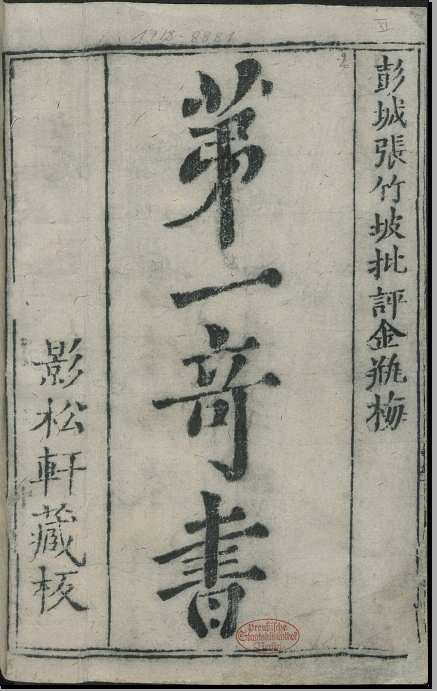 1918-8881
II
2
彭城張竹坡批評金瓶梅
第一竒書
影松軒藏板
Preußische
Staatsbibliothek
Berlin